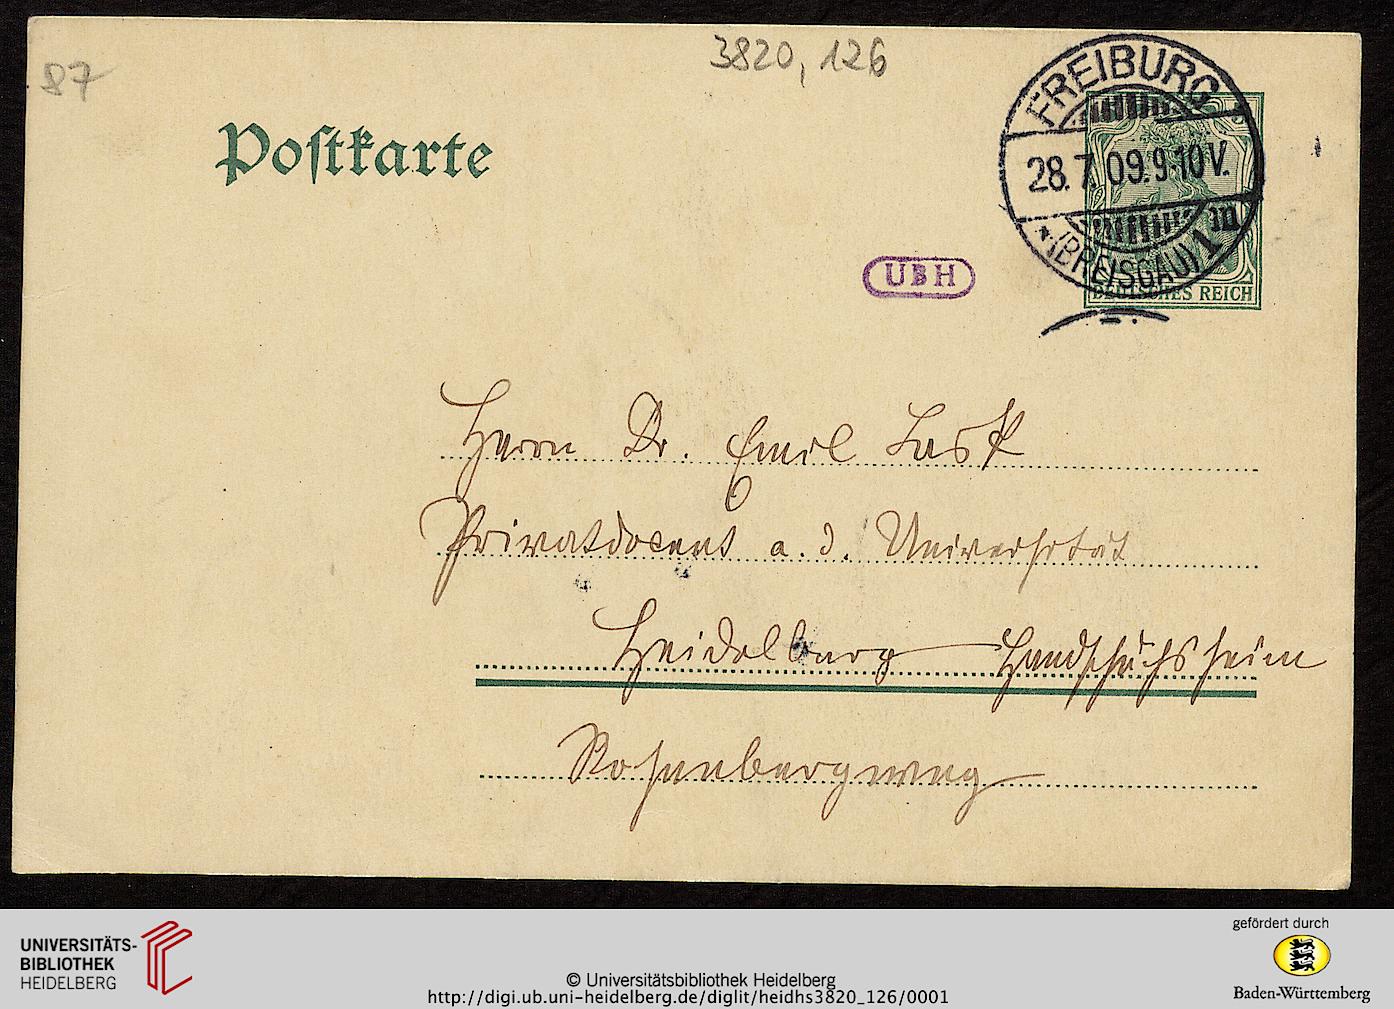 87
3820, 126
Postkarte
FREIBURG
28.7.09.9-10V.
* (BREISGAU) 1 m
DEUTSCHES REICH
UBH
Herrn Dr. Emil Lask
Privatdocent a. d. Universität
Heidelberg – Handschuhsheim
Rosenbergweg
UNIVERSITÄTS-
BIBLIOTHEK
HEIDELBERG
© Universitätsbibliothek Heidelberg
http://digi.ub.uni-heidelberg.de/diglit/heidhs3820_126/0001
gefördert durch
Baden-Württemberg